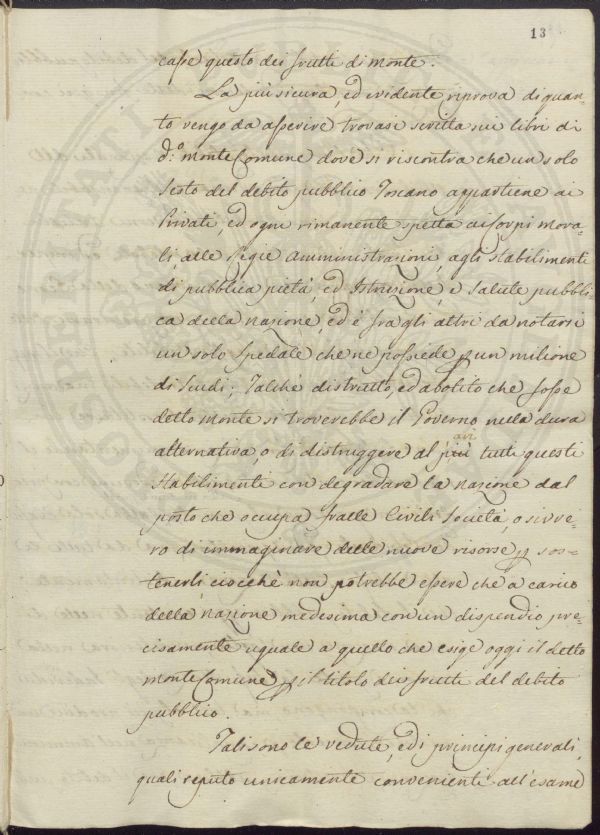 13
casse questo dei frutti di monte.
La più sicura, ed evidente riprova di quan-
to vengo da asserire trovasi scritta nei libri di
d.o monte Comune dove si riscontra che un solo
Sesto del debito pubblico Toscano appartiene ai
Privati, ed ogni rimanente spetta ai Corpi mora-
li, alle Regie Amministrazioni, agli stabilimenti
di pubblica pietà, ed Istruzione, e Salute pubbli-
ca della nazione, ed è fra gli altri da notarsi
un solo spedale che ne possiede p un milione
di Scudi; Talchè distrutto, ed abolito che fosse
detto monte si troverebbe il Governo nella dura
alternativa, o di distruggere al più tutti questi
stabilimenti con degradare la nazione dal
posto che occupa fralle Civili Società, o sivve-
ro di immaginare delle nuove risorse p sos-
tenerli ciocchè non potrebbe essere che a carico
della nazione medesima con un dispendio pre-
cisamente uguale a quello che esige oggi il detto
monte Comune p il titolo dei frutti del debito
pubblico.
Tali sono le vedute, ed i principi generali,
quali reputo unicamente convenienti all'esame